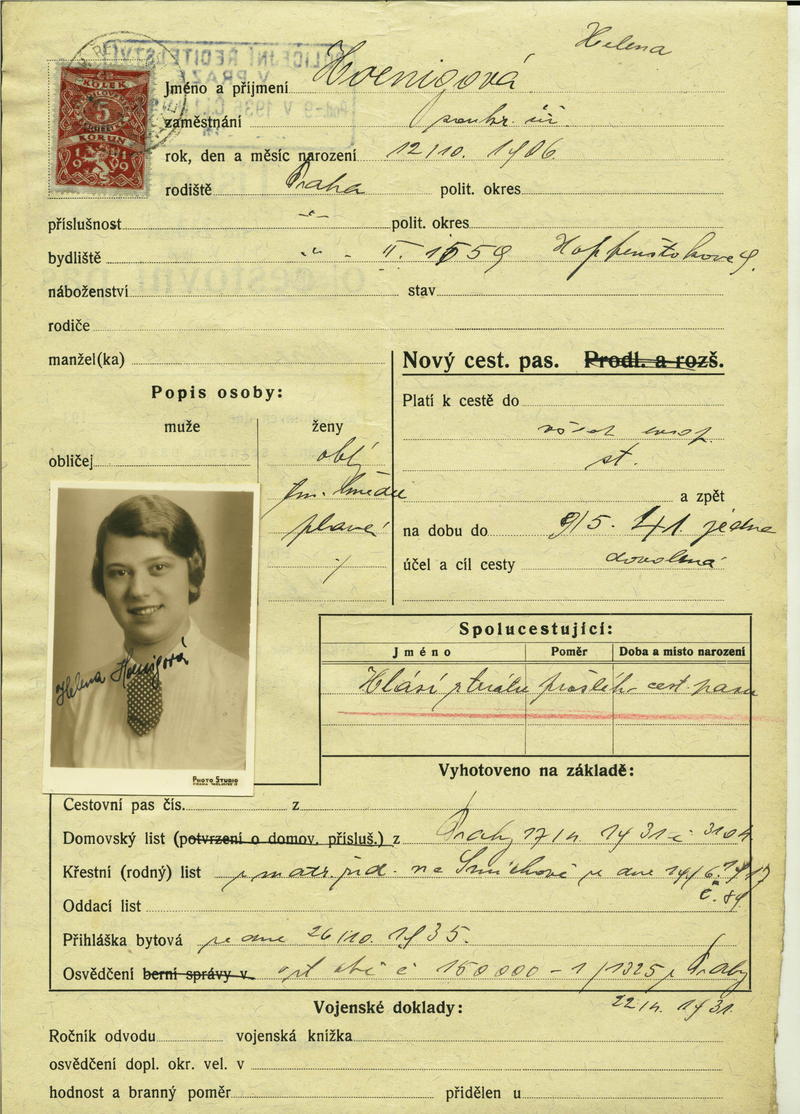 Helena
POLICEJNÍ ŘEDITELSTVÍ
V PRAZE
KOLEK
5
KORUN
1919
Jméno a příjmení Hoenigová
zaměstnání soukr. úř.
rok, den a měsíc narození 12/10. 1906
rodiště Praha polit. okres
příslušnost -"- polit. okres
bydliště -"- II. 1559
náboženství stav
rodiče
manžel(ka)
Nový cest. pas. Prodl. a rozš.
Popis osoby:
Platí k cestě do
muže ženy
všech evrop.
obličej oblý
st.
a zpět
plavé
na dobu do 9/5. 41. jedna
účel a cíl cesty dovolená
Spolucestující:
Jméno Poměr Doba a místo narození
Hlásí ztrátu prošlého cest. pasu
Helena Hoenigová
PHOTO STUDIO
Vyhotoveno na základě:
Cestovní pas čís. z
Domovský list (potvrzení o domov. přísluš.) z Prahy 17/4. 1931 č. 3104
Křestní (rodný) list z matr. žid. na Smíchově ze dne 14/6. 1917
č. 84
Oddací list
Přihláška bytová ze dne 26/10. 1935.
Osvědčení berní správy v. č 150000-1/1325 z Prahy
22/4. 1931.
Vojenské doklady:
Ročník odvodu vojenská knížka
osvědčení dopl. okr. vel. v
hodnost a branný poměr přidělen u